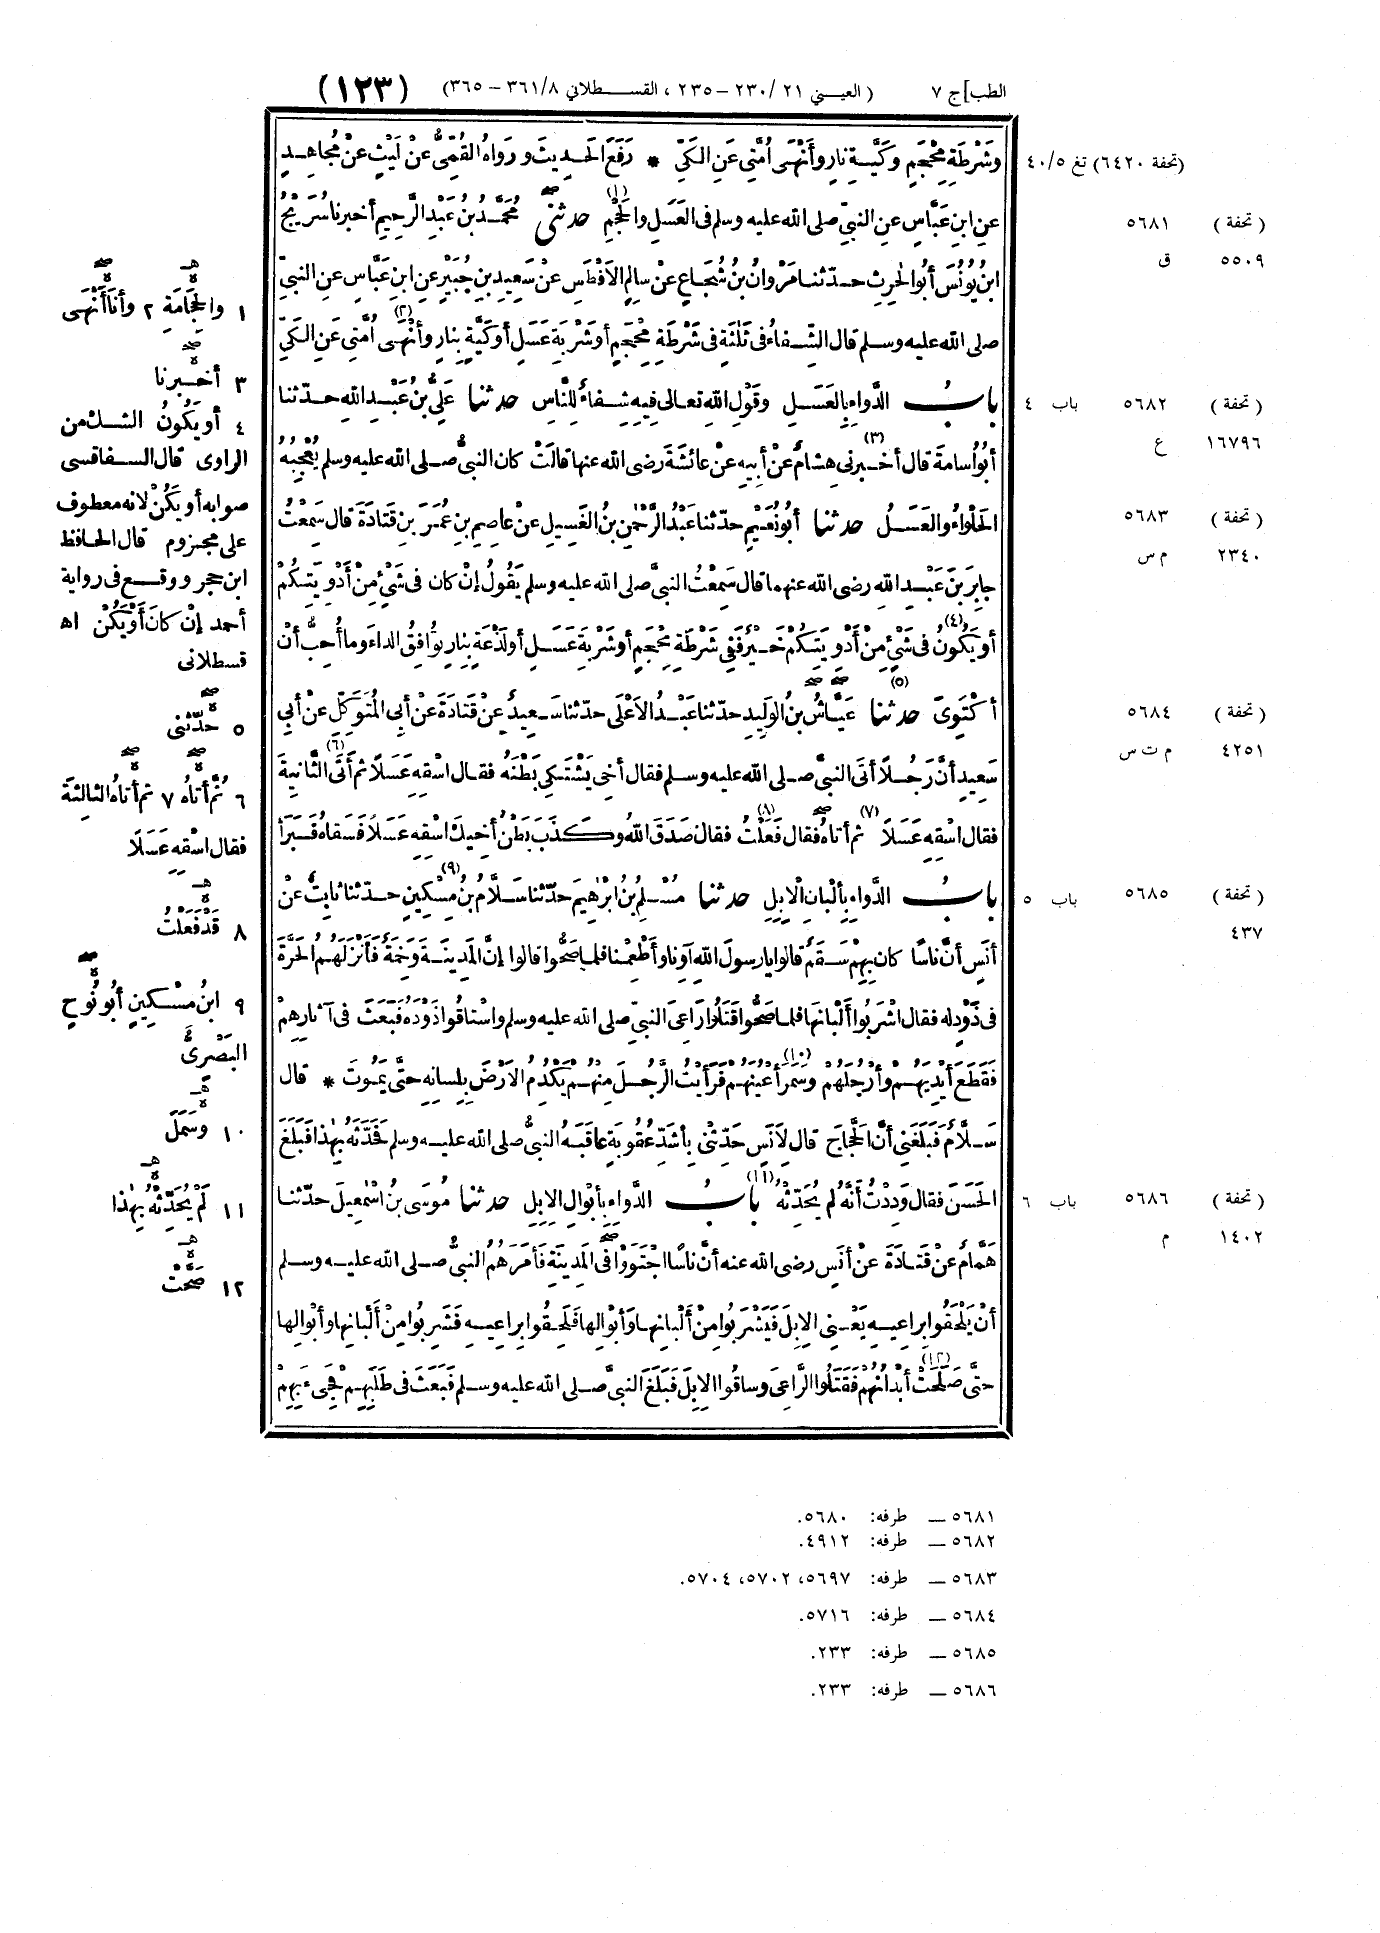 الطب] ج ٧ (العيني ٢١/ ٢٣٠ – ٢٣٥ ، القسطلاني ٨/ ٣٦١ – ٣٦٥) (١٢٣)
وَشَرْطَةِ مِحْجَمٍ وَكَيَّةِ نارٍ وأَنْهَى أُمَّتِي عَنِ الكَيِّ * رَفَعَ الحَدِيثَ ورَواهُ القُمِّيُّ عنْ لَيْثٍ عنْ مُجاهِدٍ
عنِ ابنِ عَبَّاسٍ عنِ النبيِّ صلى الله عليه وسلم فى العَسَلِ والحَجْمِ (١) حدثنى مُحَمَّدُ بنُ عَبْدِ الرَّحِيمِ أخبرنا سُرَيْجُ
ابنُ يُونُسَ أبُو الحٰرِثِ حدثنا مَرْوانُ بنُ شُجَاعٍ عنْ سالِمٍ الأَفْطَسِ عنْ سَعِيدِ بنِ جُبَيْرٍ عنِ ابنِ عَبَّاسٍ عنِ النبيِّ
صلى الله عليه وسلم قال الشِّفاءُ فى ثَلٰثَةٍ فى شَرْطَةِ مِحْجَمٍ أو شَرْبَةِ عَسَلٍ أو كَيَّةٍ بِنارٍ وأنْهَى (٢) أُمَّتِي عنِ الكَيِّ
بابُ الدَّواءِ بِالعَسَلِ وقَوْلِ اللهِ تعالى فِيهِ شِفاءٌ لِلنَّاسِ حدثنا عَلِيُّ بنُ عَبْدِ اللهِ حدّثنا
أبُو أُسامةَ قال أخبرنى (٣) هِشامٌ عنْ أبِيهِ عنْ عائشَةَ رضى الله عنها قالَتْ كان النبيُّ صلى الله عليه وسلم يُعْجِبُهُ
الحَلْواءُ والعَسَلُ حدثنا أبُو نُعَيْمٍ حدّثنا عَبْدُ الرَّحْمٰنِ بنُ الغَسِيلِ عنْ عاصِمِ بنِ عُمَرَ بنِ قَتادَةَ قال سَمِعْتُ
جابِرَ بنَ عَبْدِ اللهِ رضى الله عنهما قال سَمِعْتُ النبيَّ صلى الله عليه وسلم يَقُولُ إنْ كان فى شَيْءٍ مِنْ أدْوِيَتِكُمْ
أو يَكُونُ (٤) فى شَيْءٍ مِنْ أدْوِيَتِكُمْ خَيْرٌ فَفِي شَرْطَةِ مِحْجَمٍ أو شَرْبَةِ عَسَلٍ أو لَذْعَةٍ بِنارٍ تُوافِقُ الداءَ وما أُحِبُّ أنْ
أكْتَوِىَ حدثنا (٥) عَيَّاشُ بنُ الوَلِيدِ حدّثنا عَبْدُ الأَعْلَى حدّثنا سَعِيدٌ عنْ قَتادَةَ عنْ أبِي المُتَوَكِّلِ عنْ أبِي
سَعِيدٍ أنَّ رَجُلًا أتَى النبيَّ صلى الله عليه وسلم فقال أخِي يَشْتَكِي بَطْنَهُ فقال اسْقِهِ عَسَلًا ثم أتَى (٦) الثَّانِيَةَ
فقال اسْقِهِ عَسَلًا (٧) ثم أتاهُ فقال فَعَلْتُ (٨) فقال صَدَقَ اللهُ وكَذَبَ بَطْنُ أخِيكَ اسْقِهِ عَسَلًا فَسَقاهُ فَبَرَأَ
بابُ الدَّواءِ بِألْبانِ الإبِلِ حدثنا مُسْلِمُ بنُ ابْرٰهِيمَ حدّثنا سَلَّامُ بنُ مِسْكِينٍ (٩) حدثنا ثابِتٌ عنْ
أنَسٍ أنَّ ناسًا كان بِهِمْ سَقَمٌ قالوا يا رسولَ اللهِ آوِنا وأَطْعِمْنا فلما صَحُّوا قالوا إنَّ المَدِينَةَ وَخِمَةٌ فَأَنْزَلَهُمُ الحَرَّةَ
فى ذَوْدٍ له فقال اشْرَبُوا ألْبانَها فلما صَحُّوا قَتَلُوا رَاعِىَ النبيِّ صلى الله عليه وسلم واسْتاقُوا ذَوْدَهُ فَبَعَثَ فى آثارِهِمْ
فَقَطَعَ أيْدِيَهُمْ وأرْجُلَهُمْ وسَمَرَ (١٠) أعْيُنَهُمْ فَرَأَيْتُ الرَّجُلَ مِنْهُمْ يَكْدُمُ الأَرْضَ بِلِسانِهِ حتَّى يَمُوتَ * قال
سَلَّامٌ فَبَلَغَنِي أنَّ الحَجَّاجَ قال لِأَنَسٍ حَدِّثْنِي بِأَشَدِّ عُقُوبَةٍ عاقَبَهُ النبيُّ صلى الله عليه وسلم فَحَدَّثَهُ بِهٰذا فَبَلَغَ
الحَسَنَ فقال وَدِدْتُ أنَّهُ لم يُحَدِّثْهُ (١١) بابُ الدَّواءِ بِأبْوالِ الإبِلِ حدثنا مُوسَى بنُ اسْمٰعِيلَ حدّثنا
هَمَّامٌ عنْ قَتادَةَ عنْ أنَسٍ رضى الله عنه أنَّ ناسًا اجْتَوَوْا فى المَدِينَةِ فَأمَرَهُمُ النبيُّ صلى الله عليه وسلم
أنْ يَلْحَقُوا بِراعِيهِ يَعْنِي الإبِلَ فَيَشْرَبُوا مِنْ ألْبانِها وأبْوالِها فَلَحِقُوا بِراعِيهِ فَشَرِبُوا مِنْ ألْبانِها وأبْوالِها
حتَّى صَلَحَتْ (١٢) أبْدانُهُمْ فَقَتَلُوا الرَّاعِىَ وساقُوا الإبِلَ فَبَلَغَ النبيَّ صلى الله عليه وسلم فَبَعَثَ فى طَلَبِهِمْ فَجِىءَ بِهِمْ
(تحفة ٦٤٢٠) تغ ٤٠/٥
(تحفة) ٥٦٨١
٥٥٠٩ ق
(تحفة) ٥٦٨٢ باب ٤
١٦٧٩٦ ع
(تحفة) ٥٦٨٣
٢٣٤٠ م س
(تحفة) ٥٦٨٤
٤٢٥١ م ت س
(تحفة) ٥٦٨٥ باب ٥
٤٣٧
(تحفة) ٥٦٨٦ باب ٦
١٤٠٢ م
١ والحَجَامَةِ ٢ وأَنَا أَنْهَى
٣ أخبرنا
٤ أو يَكُونُ الشك من
الراوى قال السفاقسى
صوابه أو يَكُنْ لانه معطوف
على مجزوم قال الحافظ
ابن حجر ووقع فى رواية
أحمد إنْ كانَ أَوْ يَكُنْ اه
قسطلانى
٥ حدّثنى
٦ ثُمَّ أتاهُ ٧ ثم أتاهُ الثالِثَةَ
فقال اسْقِهِ عَسَلًا
٨ قَدْ فَعَلْتُ
٩ ابنُ مِسْكِينٍ أبُو نُوحٍ
البَصْرِىُّ
١٠ وسَمَلَ
١١ لَمْ يُحَدِّثْهُ بِهٰذا
١٢ صَحَّتْ
٥٦٨١ — طرفه: ٥٦٨٠.
٥٦٨٢ — طرفه: ٤٩١٢.
٥٦٨٣ — طرفه: ٥٦٩٧، ٥٧٠٢، ٥٧٠٤.
٥٦٨٤ — طرفه: ٥٧١٦.
٥٦٨٥ — طرفه: ٢٣٣.
٥٦٨٦ — طرفه: ٢٣٣.